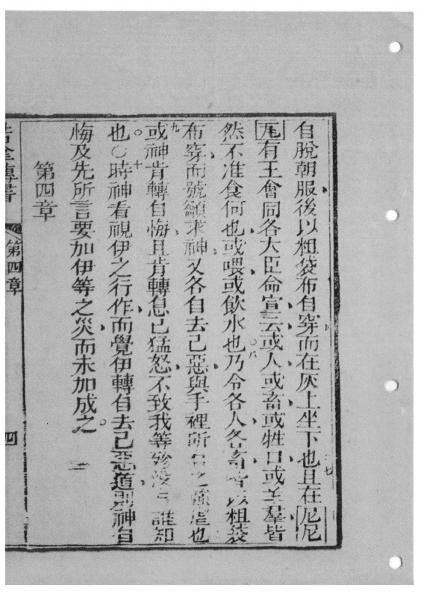 自脫朝服後以粗袋布自穿而在灰上坐下也且在尼尼
瓦有王會同各大臣命宣云或人或畜或牲口或羊羣皆
八
然不准食何也或喂或飲水也乃令各人各畜皆以粗袋
布穿而號籲求神又各自去己惡與手裡所之強虐也
九
或神肯轉自悔且肯轉息己猛怒不致我等誰知
十
也○時神看視伊之行作而覺伊轉自去己惡道則神自
悔及先所言要加伊等之災而未加成之
第四章
書
第四章
四